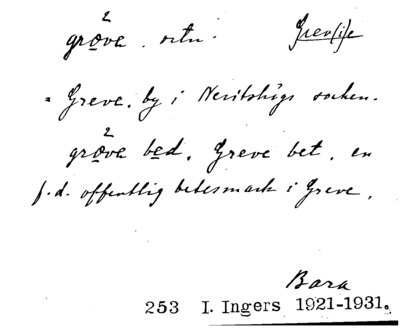 2
grova. ortn. Grev(i)e
= Greve, by i Nevitshögs socken.
2
grova bed, Greve bet, en
f.d. offentlig betesmark i Greve.
Bara
253 I. Ingers 1921-1931.